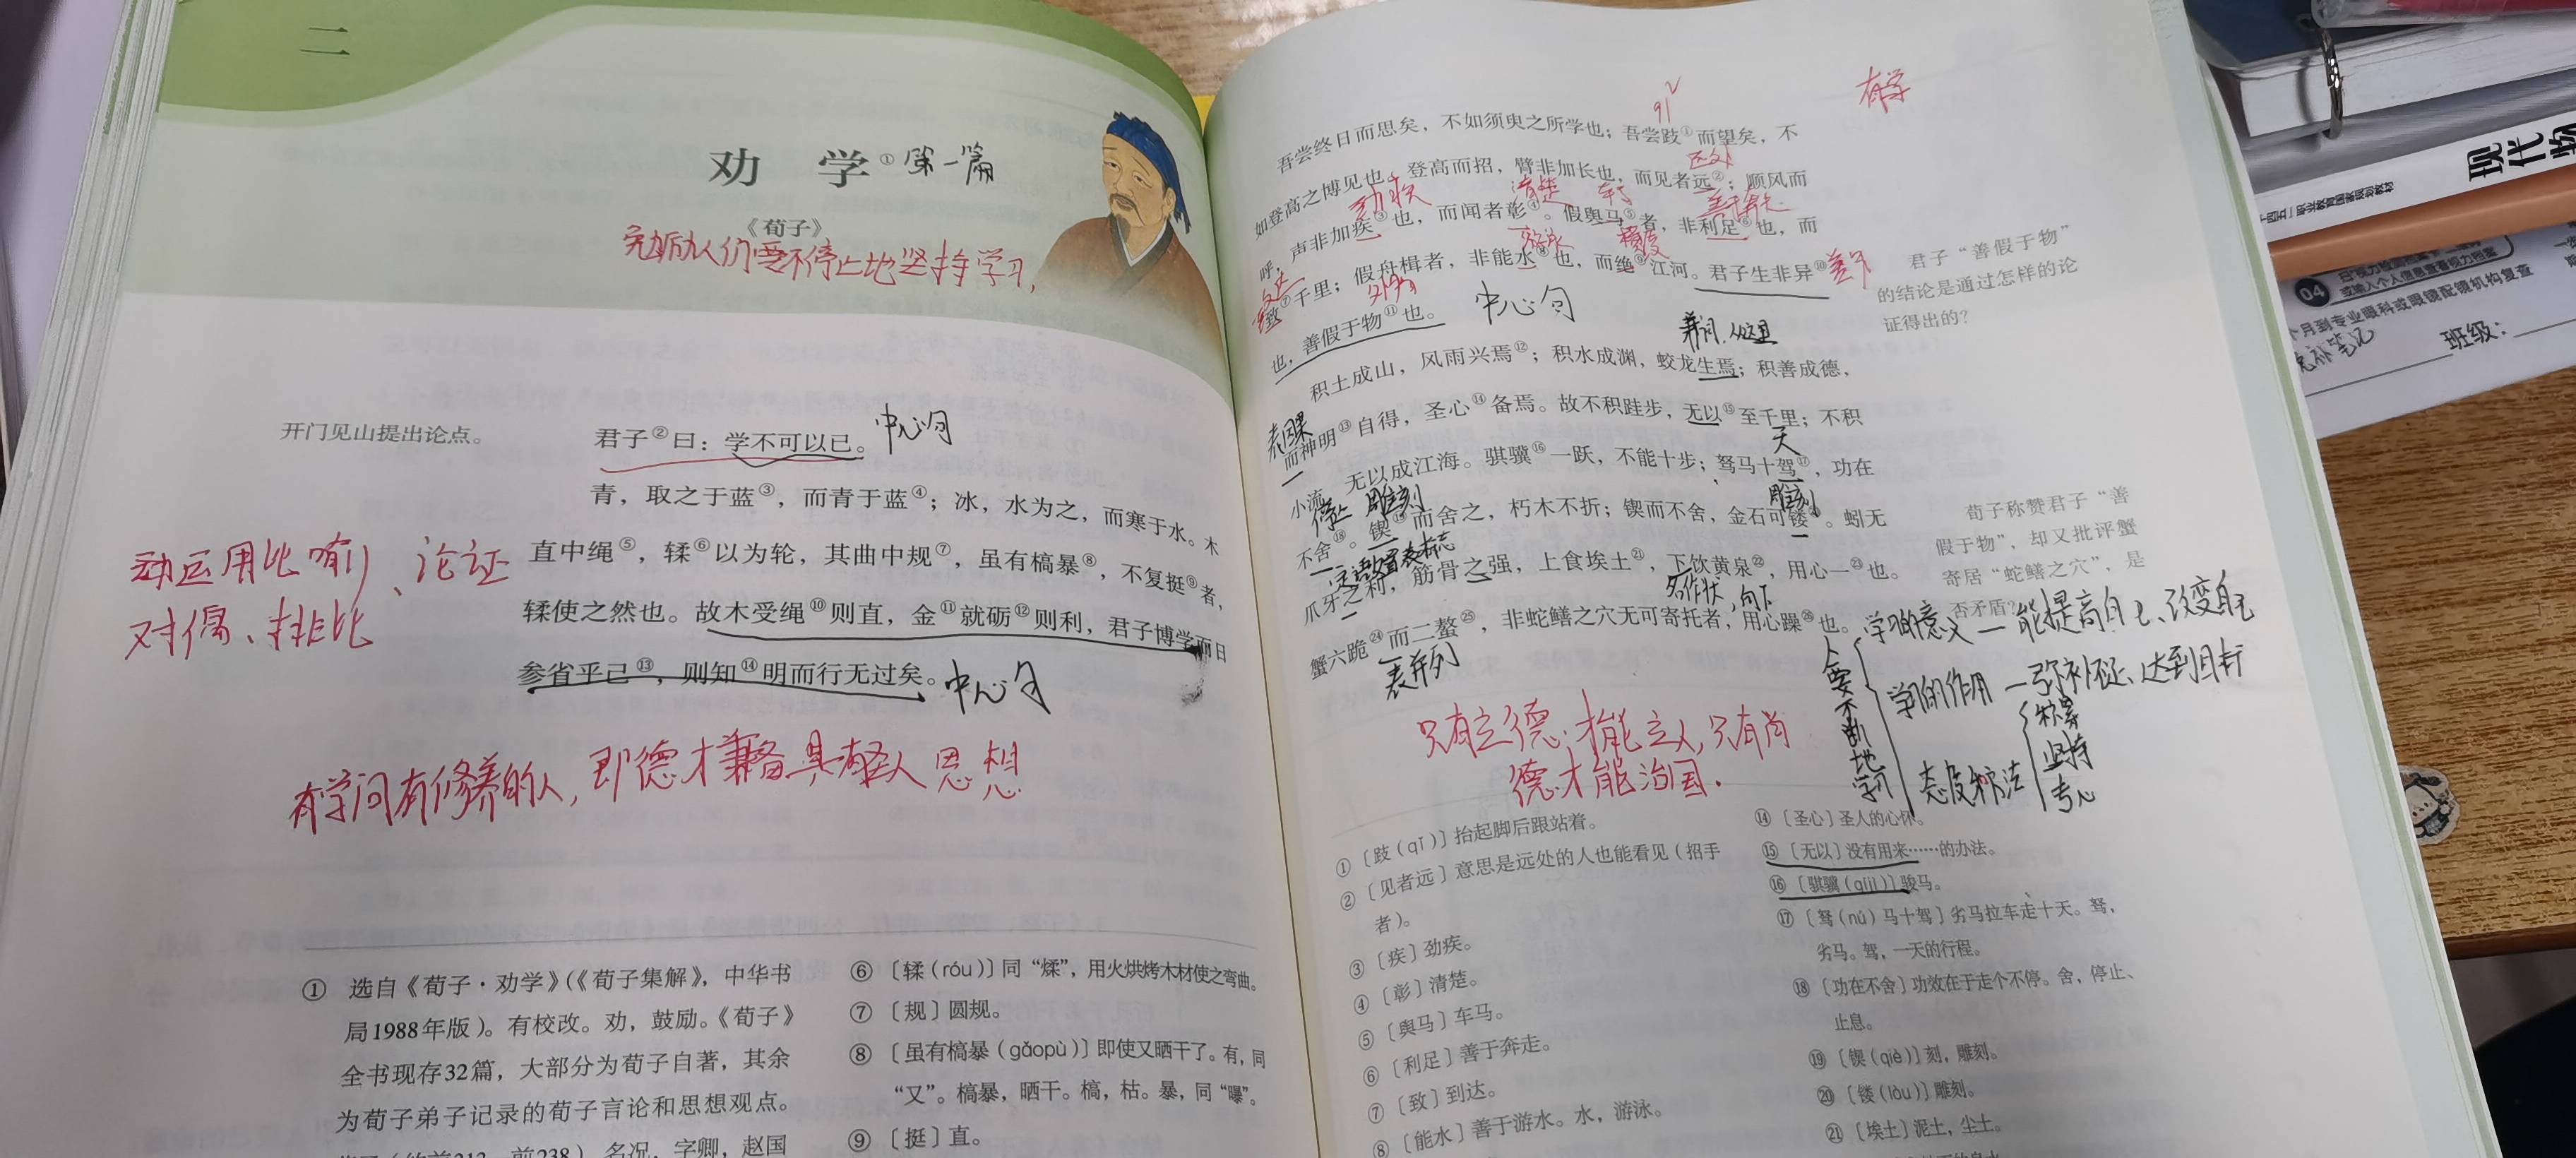 二
劝 学① 第一篇
《荀子》
勉励人们要不停止地坚持学习,
开门见山提出论点。
君子②曰：学不可以已。 中心句
青，取之于蓝③，而青于蓝④；冰，水为之，而寒于水。木
直中绳⑤，𫐓⑥以为轮，其曲中规⑦，虽有槁暴⑧，不复挺⑨者，
𫐓使之然也。故木受绳⑩则直，金⑪就砺⑫则利，君子博学而日
参省乎己⑬，则知⑭明而行无过矣。 中心句
运用比喻、论证
对偶、排比
有学问有修养的人,即德才兼备具有 人思想
① 选自《荀子·劝学》（《荀子集解》，中华书
局1988年版）。有校改。劝，鼓励。《荀子》
全书现存32篇，大部分为荀子自著，其余
为荀子弟子记录的荀子言论和思想观点。
名况，字卿，赵国
⑥ 〔𫐓（róu）〕同“煣”，用火烘烤木材使之弯曲。
⑦ 〔规〕圆规。
⑧ 〔虽有槁暴（gǎopù）〕即使又晒干了。有，同
“又”。槁暴，晒干。槁，枯。暴，同“曝”。
⑨ 〔挺〕直。
有学
吾尝终日而思矣，不如须臾之所学也；吾尝跂①而望矣，不
远处
如登高之博见也。登高而招，臂非加长也，而见者远②；顺风而
劲疾 清楚 车
呼，声非加疾③也，而闻者彰④。假舆马⑤者，非利足⑥也，而
游泳 横渡
致⑦千里；假舟楫者，非能水⑧也，而绝⑨江河。君子生非异⑩
到达 外物 差别
也，善假于物⑪也。 中心句
君子“善假于物”
的结论是通过怎样的论
证得出的？
兼词，从这里
积土成山，风雨兴焉⑫；积水成渊，蛟龙生焉；积善成德，
表因果
而神明⑬自得，圣心⑭备焉。故不积跬步，无以⑮至千里；不积
天
小流，无以成江海。骐骥⑯一跃，不能十步；驽马十驾⑰，功在
停止 雕刻 雕刻
不舍⑱。锲⑲而舍之，朽木不折；锲而不舍，金石可镂⑳。蚓无
定语后置表标志
爪牙之利，筋骨之强，上食埃土㉑，下饮黄泉㉒，用心一㉓也。
名作状,向下
蟹六跪㉔而二螯㉕，非蛇鳝之穴无可寄托者，用心躁㉖也。
表并列
荀子称赞君子“善
假于物”，却又批评蟹
寄居“蛇鳝之穴”，是
否矛盾？
人要不断地学习
学习的意义 — 能提高自己、改变自己
学习的作用 — 弥补不足、达到目标
态度和方法
积累
坚持
专心
只有立德,才能立人,只有尚
德才能治国.
① 〔跂（qǐ）〕抬起脚后跟站着。
② 〔见者远〕意思是远处的人也能看见（招手
者）。
③ 〔疾〕劲疾。
④ 〔彰〕清楚。
⑤ 〔舆马〕车马。
⑥ 〔利足〕善于奔走。
⑦ 〔致〕到达。
⑧ 〔能水〕善于游水。水，游泳。
⑭ 〔圣心〕圣人的心怀。
⑮ 〔无以〕没有用来……的办法。
⑯ 〔骐骥（qíjì）〕骏马。
⑰ 〔驽（nú）马十驾〕劣马拉车走十天。驽，
劣马。驾，一天的行程。
⑱ 〔功在不舍〕功效在于走个不停。舍，停止、
止息。
⑲ 〔锲（qiè）〕刻，雕刻。
⑳ 〔镂（lòu）〕雕刻。
㉑ 〔埃土〕泥土，尘土。
现代
04
月到专业眼科或眼镜配镜机构复查
班级：